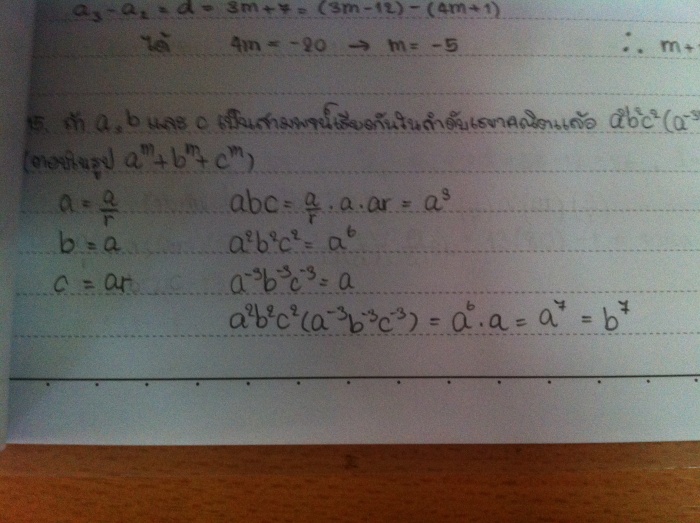 a₃-a₂ = d = 3m+7 = (3m-12)-(4m+1)
ได้ 4m = -20 → m = -5 ∴ m+
15. ถ้า a, b และ c เป็นสามพจน์เรียงกันในลำดับเรขาคณิตแล้ว a²b²c²(a⁻³
(ตอบในรูป aᵐ+bᵐ+cᵐ)
a = a/r abc = a/r · a · ar = a³
b = a a²b²c² = a⁶
c = ar a⁻³b⁻³c⁻³ = a
a²b²c²(a⁻³b⁻³c⁻³) = a⁶·a = a⁷ = b⁷